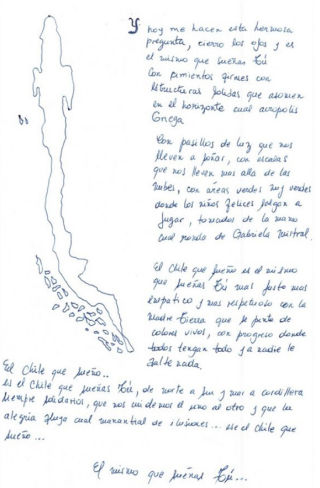 Y hoy me hacen esta hermosa
pregunta, cierro los ojos y es
el mismo que sueñas tú
Con cimientos firmes con
estructuras solidas que asomen
en el horizonte cual acropolis
Griega
Con pasillos de luz que nos
lleven a soñar, con escalas
que nos lleven mas alla de las
nubes, con áreas verdes muy verdes
donde los niños felices salgan a
jugar, tomados de la mano
cual ronda de Gabriela Mistral.
El Chile que sueño es el mismo
que sueñas tú mas justo mas
empatico y mas respetuoso con la
Madre tierra que se pinta de
colores vivos, con progreso donde
todos tengan todo y a nadie le
falte nada.
El Chile que sueño..
es el Chile que sueñas tú, de norte a sur y mar a cordillera
siempre solidarios, que nos cuidemos el uno al otro y que la
alegria fluya cual manantial de ilusiones... ese el chile que
sueño...
El mismo que sueñas tú...